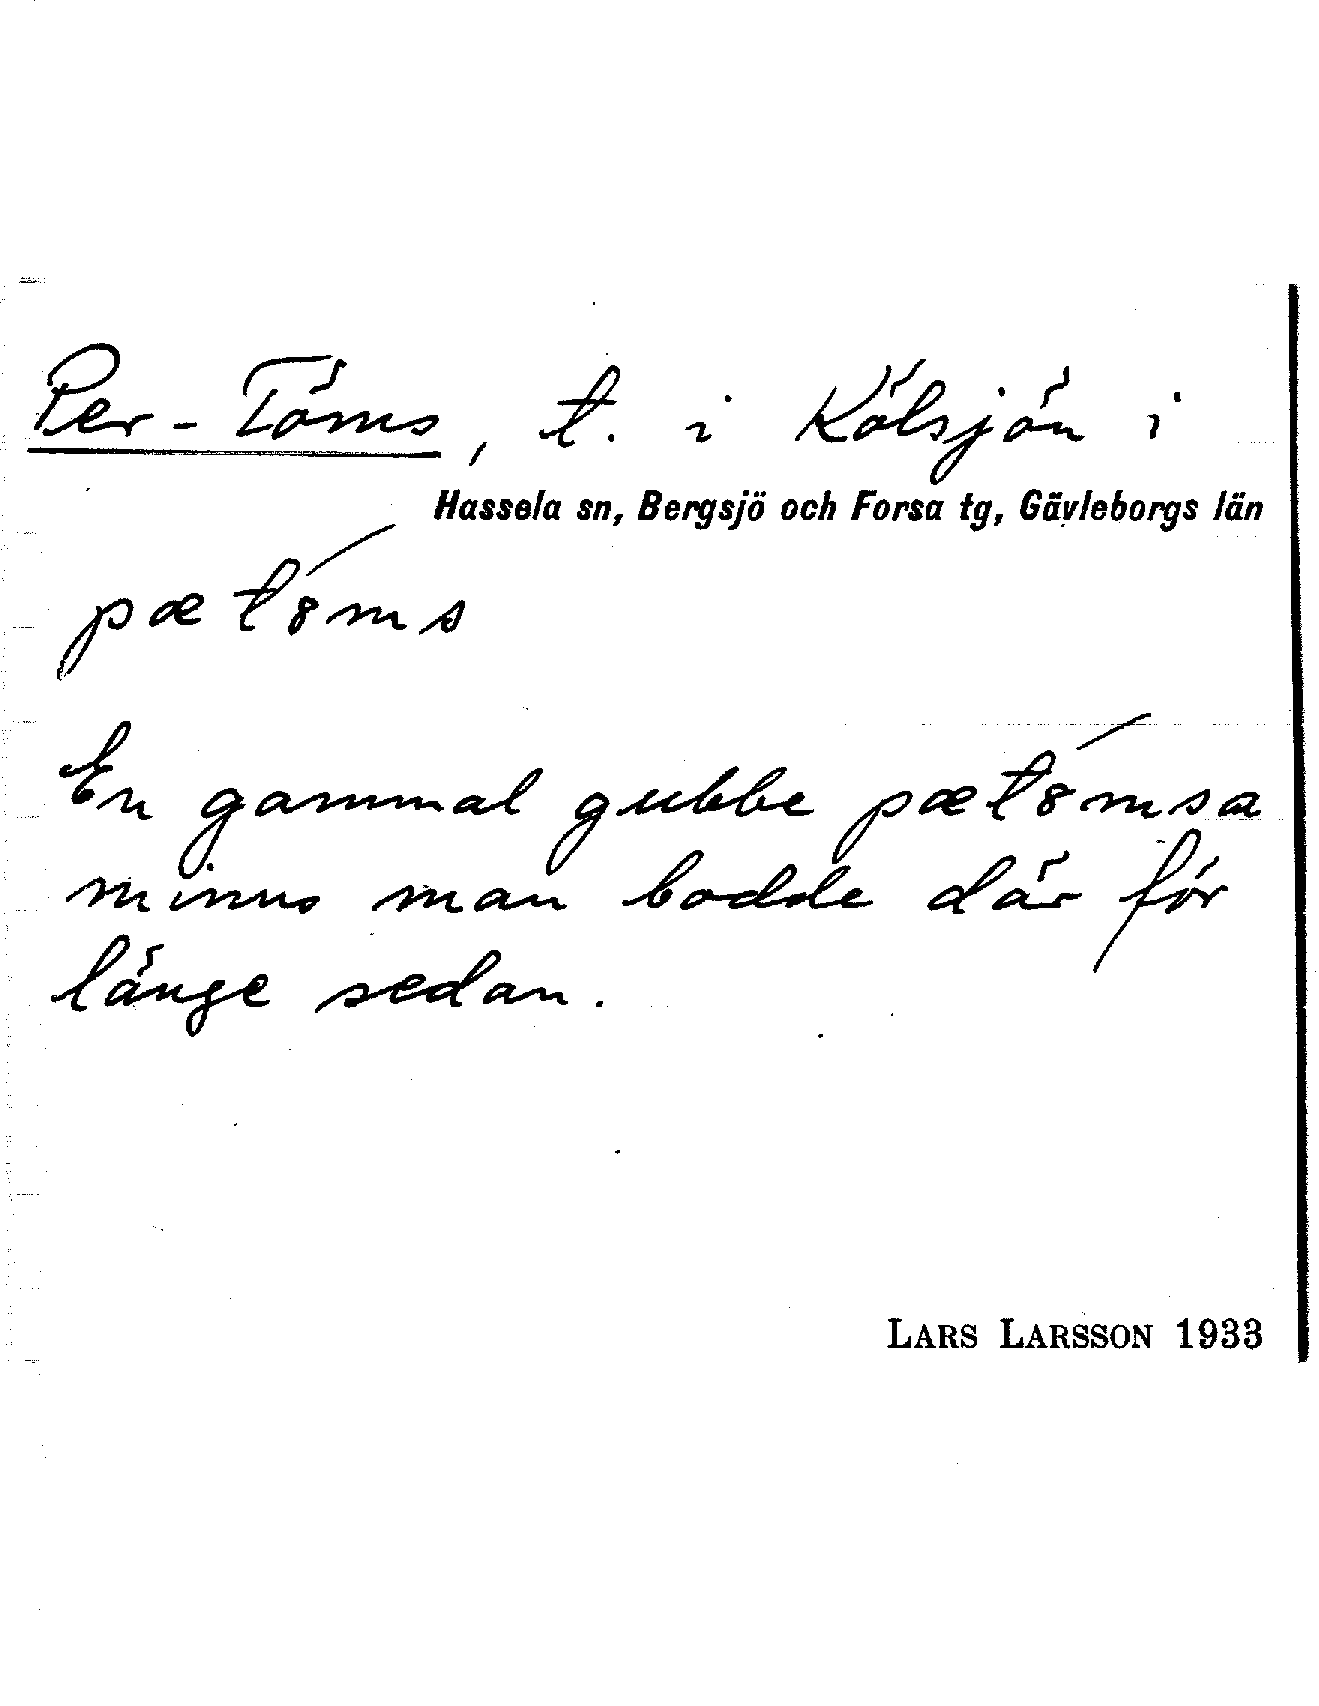 Per-Töms, t. i Kölsjön i
Hassela sn, Bergsjö och Forsa tg, Gävleborgs län
pætȣ́ms
En gammal gubbe pætȣ́msa
minns man bodde där för
länge sedan.
LARS LARSSON 1933